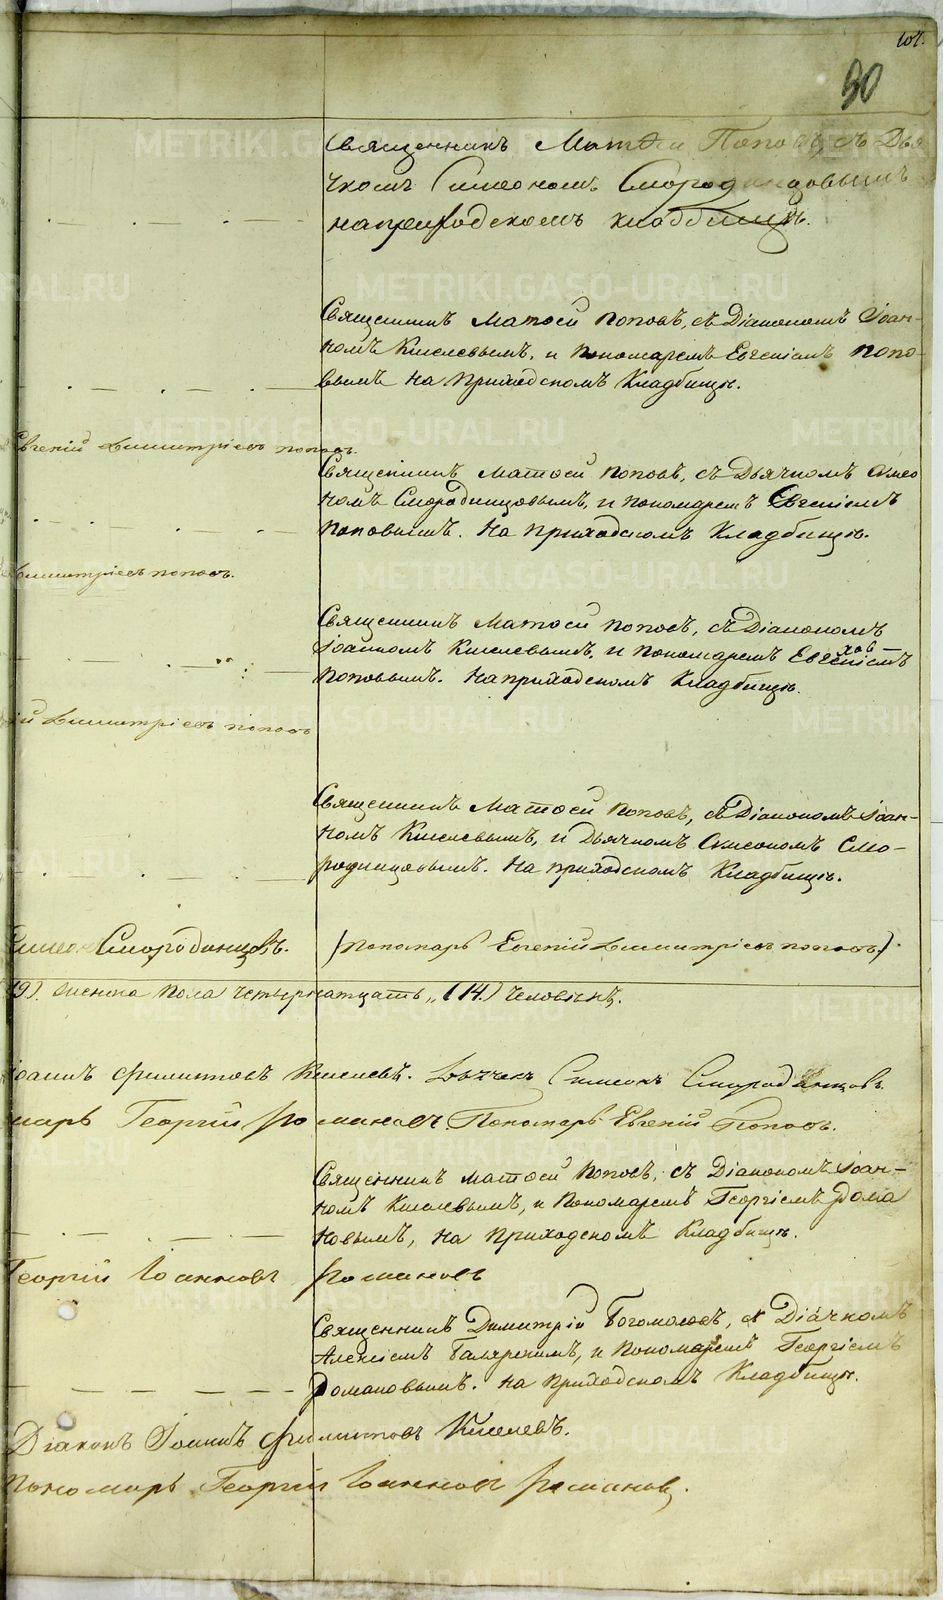 107.
90
Священникъ Матѳей Поповъ съ Дья
чкомъ Симеономъ Смородинцовымъ
на приходскомъ кладбищѣ.
Священникъ Матѳей Поповъ, съ Діакономъ Іоан-
номъ Киселевымъ, и Пономаремъ Евгеніемъ Попо-
вымъ на приходскомъ Кладбищѣ.
Евгений Димитріевъ Поповъ.
Священникъ Матѳей Поповъ, съ Дьячкомъ Симео
номъ Смородинцовымъ, и пономаремъ Евгеніемъ
Поповымъ. На приходскомъ Кладбищѣ.
Димитріевъ Поповъ.
Священникъ Матѳей Поповъ, съ Діакономъ
Іоанномъ Киселевымъ, и Пономаремъ Евгеніемъ
Поповымъ. На приходскомъ Кладбищѣ.
ій Димитріевъ Поповъ
Священникъ Матѳей Поповъ, съ Діакономъ Іоан-
номъ Киселевымъ, и Дьячкомъ Симеономъ Смо-
родинцовымъ. На приходскомъ Кладбищѣ.
Симеон Смородинцовъ. (Пономарь Евгений Димитріевъ Поповъ).
(9). Женска пола четырнатцать „(14.) человѣкъ.
Іоаннъ Филиповъ Киселевъ. Дьячекъ Симеонъ Смородинцовъ
марь Георгий Романовъ. Пономарь Евгений Поповъ.
Священникъ Матѳей Поповъ, съ Діакономъ Іоан-
номъ Киселевымъ, и Пономаремъ Георгіемъ Рома
новымъ, на приходскомъ Кладбищѣ.
Георгий Иоанновъ Романовъ
Священникъ Димитрій Богомоловъ, съ Діачкомъ
Алексіемъ и Пономаремъ Георгіемъ
Романовымъ. На приходскомъ Кладбищѣ.
Діаконъ Іоаннъ Филиповъ Киселевъ.
Пономарь Георгий Иоанновъ Романовъ.
METRIKI.GASO-URAL.RU